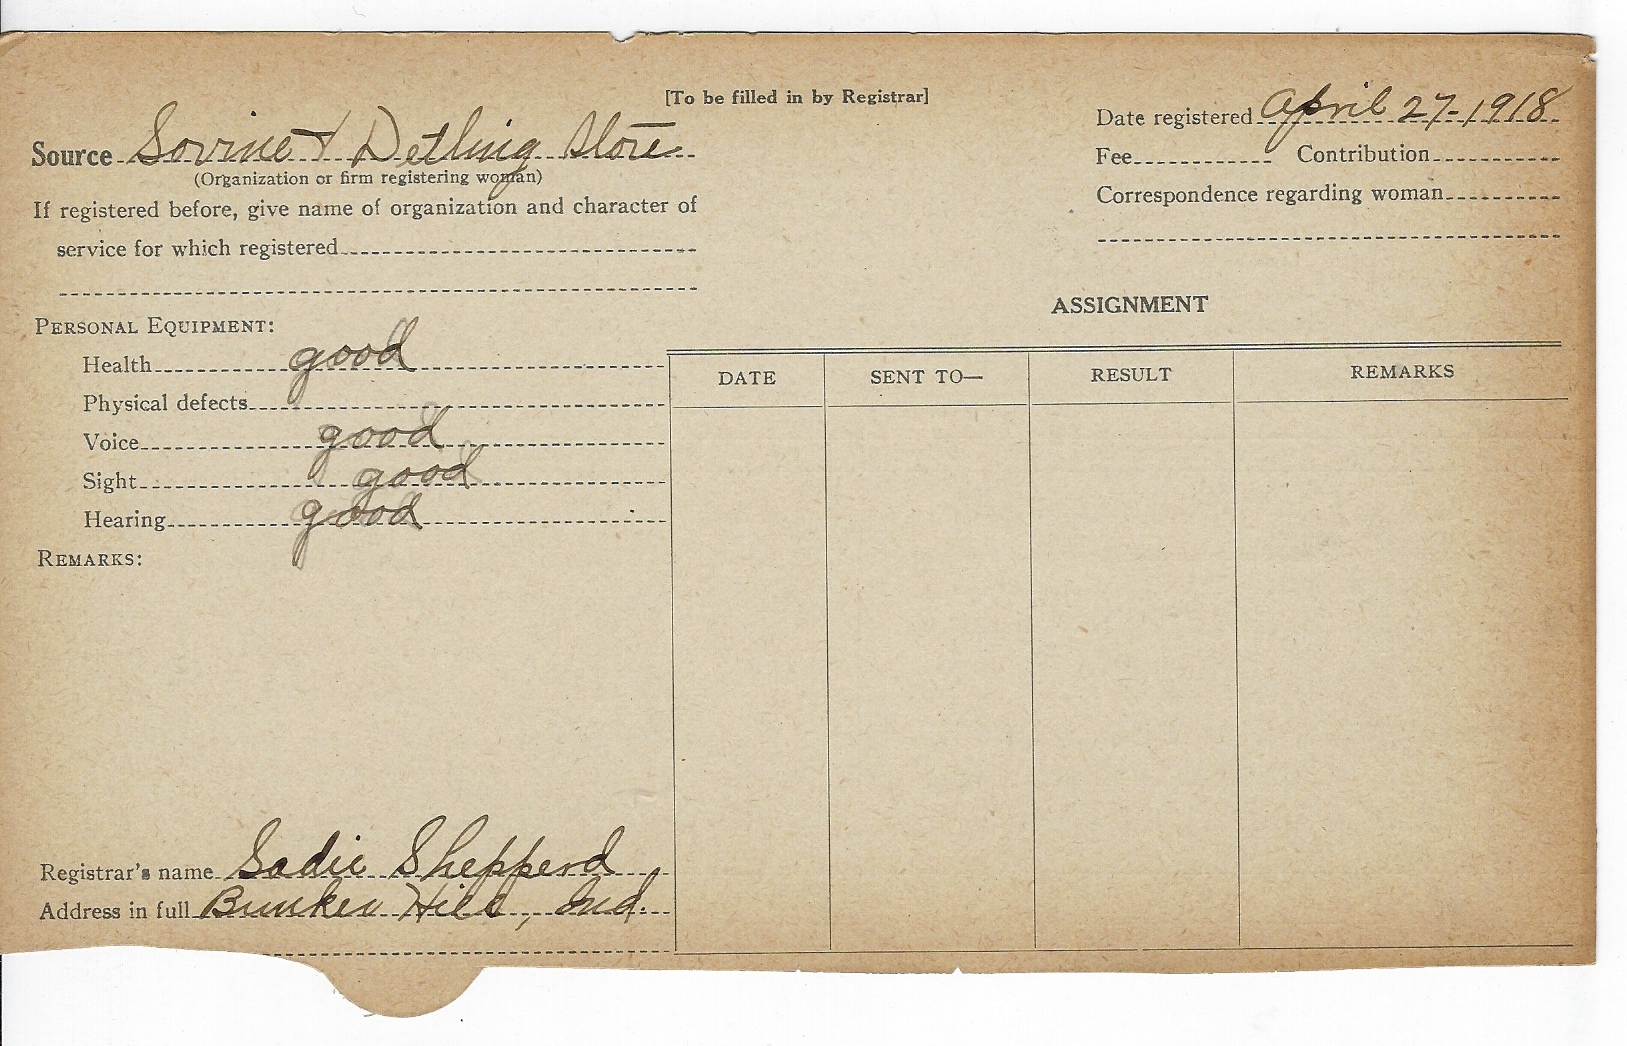 [To be filled in by Registrar]
Source Sovine & Detling Store
(Organization or firm registering woman)
If registered before, give name of organization and character of
service for which registered
Date registered April 27-1918
Fee Contribution
Correspondence regarding woman
PERSONAL EQUIPMENT:
Health good
Physical defects
Voice good
Sight good
Hearing good
REMARKS:
Registrar's name Sadie Shepperd
Address in full Bunker Hill, Ind.
ASSIGNMENT
DATE SENT TO— RESULT REMARKS